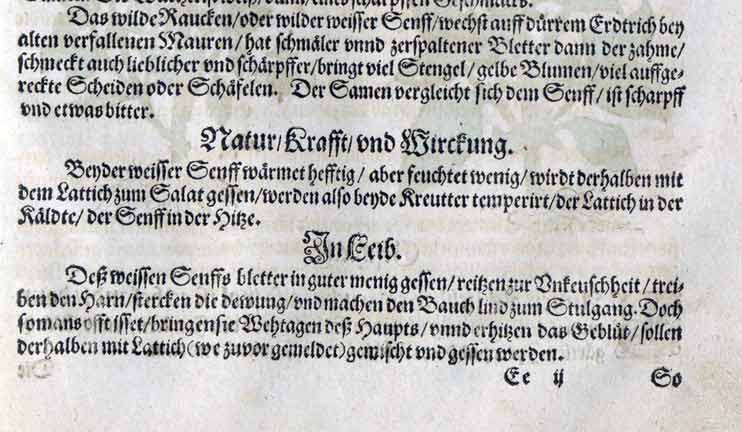 Das wilde Raucken/oder wilder weisser Senff/wechst auff dürrem Erdtrich bey
alten verfallenen Mauren/hat schmäler vnnd zerspaltener Bletter dann der zahme/
schmeckt auch lieblicher vnd schärpffer/bringt viel Stengel/gelbe Blumen/viel auffge-
reckte Scheiden oder Schäfelen. Der Samen vergleicht sich dem Senff/ist scharpff
vnd etwas bitter.
Natur/Krafft/vnd Wirckung.
Beyder weisser Senff wärmet hefftig/aber feuchtet wenig/wirdt derhalben mit
dem Lattich zum Salat gessen/werden also beyde Kreutter temperirt/der Lattich in der
Käldte/der Senff in der Hitze.
In Leib.
Deß weissen Senffs bletter in guter menig gessen/reitzen zur Vnkeuschheit/trei-
ben den Harn/stercken die dewung/vnd machen den Bauch lind zum Stulgang. Doch
so mans offt isset/bringen sie Wehtagen deß Haupts/vnnd erhitzen das Geblüt/sollen
derhalben mit Lattich(we zuvor gemeldet)gemischt vnd gessen werden.
Ee ij So